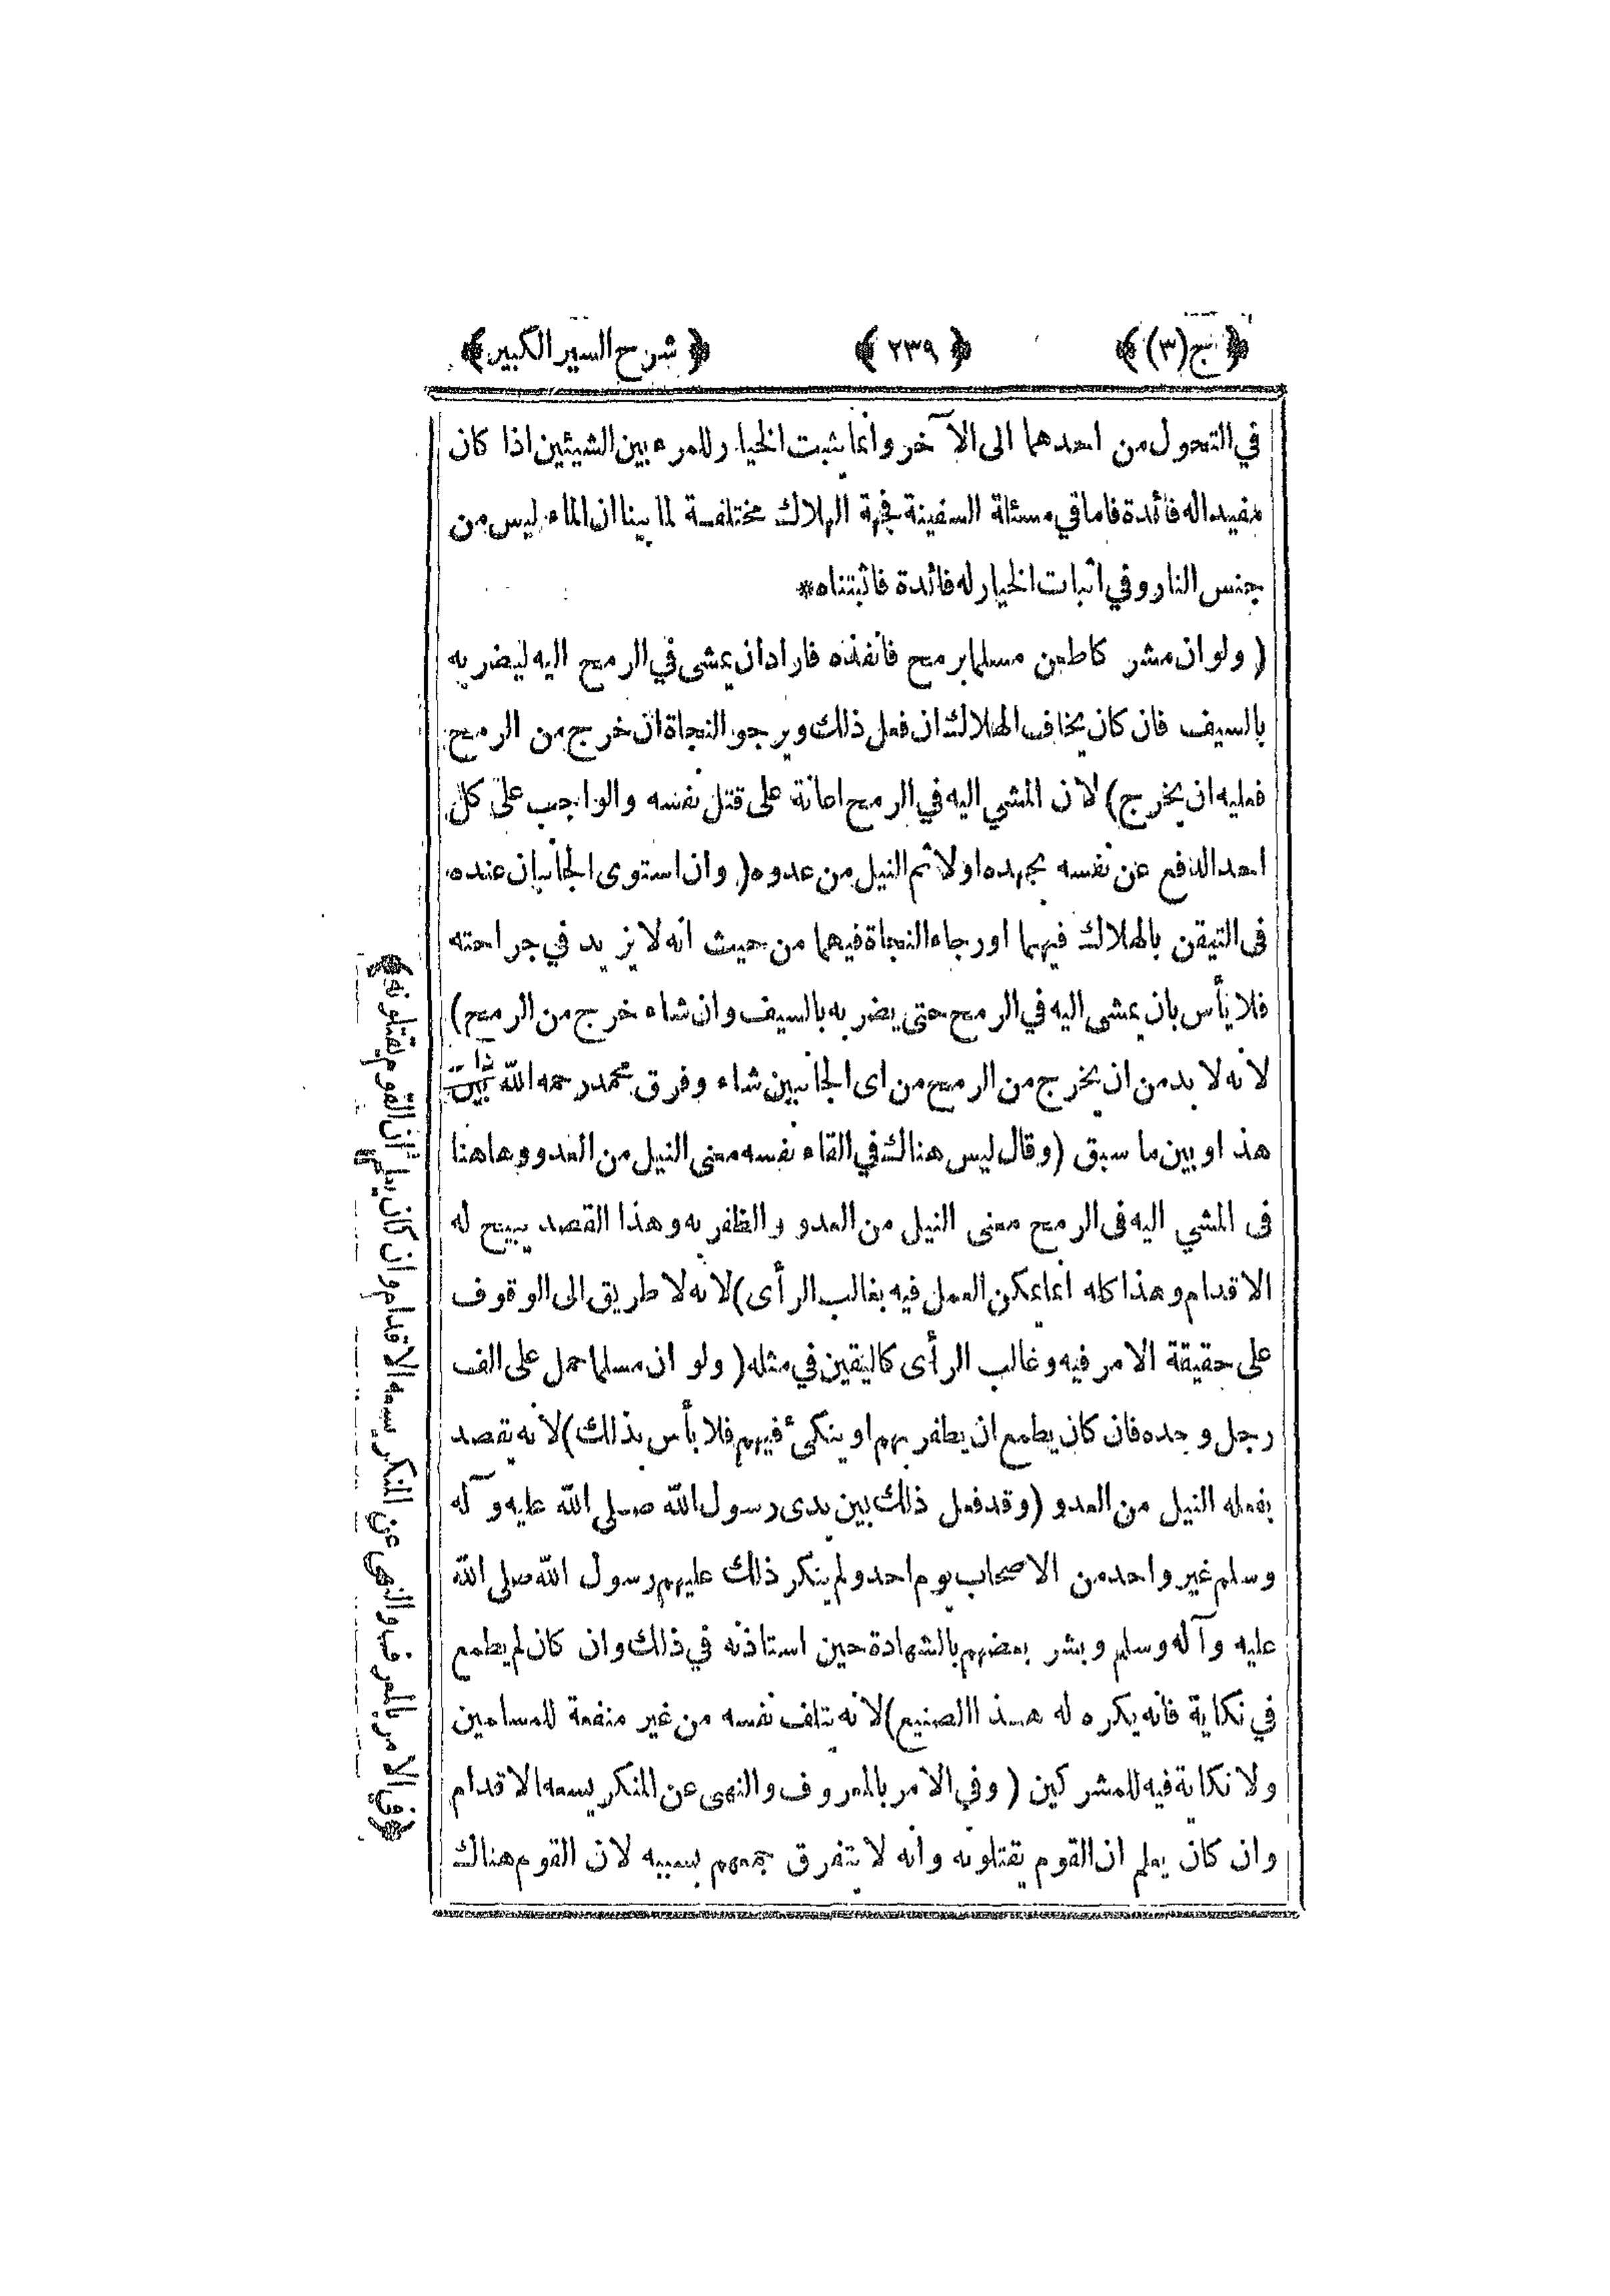 ﴿ ج (٣) ﴾ ﴿ ٢٣٩ ﴾ ﴿ شرح السير الكبير ﴾
في التحول من احدهما الى الآخر وانما يثبت الخيار للمرء بين الشيئين اذا كان
مفيدا له فائدة فاما في مسئلة السفينة فجهة الهلاك مختلفة لما بينا ان الماء ليس من
جنس النار وفي اثبات الخيار له فائدة فاثبتناه *
( ولو ان مشركا طعن مسلما برمح فانفذه فاراد ان يمشى في الرمح اليه ليضربه
بالسيف فان كان يخاف الهلاك ان فعل ذلك ويرجو النجاة ان خرج من الرمح
فعليه ان يخرج) لان المشي اليه في الرمح اعانة على قتل نفسه والواجب على كل
احد الدفع عن نفسه بجهده اولا ثم النيل من عدوه ( وان استوى الجانبان عنده
فى التيقن بالهلاك فيهما او رجاء النجاة فيهما من حيث انه لا يزيد في جراحته
فلا بأس بان يمشى اليه في الرمح حتى يضربه بالسيف وان شاء خرج من الرمح)
لانه لا بد من ان يخرج من الرمح من اى الجانبين شاء وفرق محمد رحمه الله بين
هذا وبين ما سبق (وقال ليس هناك في القاء نفسه معنى النيل من العدو وهاهنا
فى المشي اليه فى الرمح معنى النيل من العدو والظفر به وهذا القصد يبيح له
الاقدام وهذا كله انما يمكن العمل فيه بغالب الرأى) لانه لا طريق الى الوقوف
على حقيقة الامر فيه وغالب الرأى كاليقين في مثله ( ولو ان مسلما حمل على الف
رجل وحده فان كان يطمع ان يظفر بهم او ينكئ فيهم فلا بأس بذلك) لانه يقصد
بفعله النيل من العدو (وقد فعل ذلك بين يدى رسول الله صلى الله عليه وآله
وسلم غير واحد من الاصحاب يوم احد ولم ينكر ذلك عليهم رسول الله صلى الله
عليه وآله وسلم وبشر بعضهم بالشهادة حين استاذنه في ذلك وان كان لم يطمع
في نكاية فانه يكره له هذا الصنيع) لانه يتلف نفسه من غير منفعة للمسلمين
ولا نكاية فيه للمشركين ( وفي الامر بالمعروف والنهى عن المنكر يسعه الاقدام
وان كان يعلم ان القوم يقتلونه وانه لا يتفرق جمعهم بسببه لان القوم هناك
﴿ في الامر بالمعروف والنهى عن المنكر يسعه الاقدام وان كان يعلم ان القوم يقتلونه ﴾